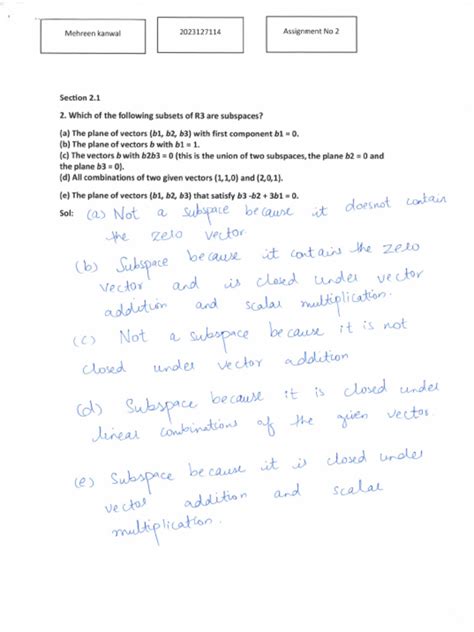 Mehreen kanwal
2023127114
Assignment No 2
Section 2.1
2. Which of the following subsets of R3 are subspaces?
(a) The plane of vectors (b1, b2, b3) with first component b1 = 0.
(b) The plane of vectors b with b1 = 1.
(c) The vectors b with b2b3 = 0 (this is the union of two subspaces, the plane b2 = 0 and
the plane b3 = 0).
(d) All combinations of two given vectors (1,1,0) and (2,0,1).
(e) The plane of vectors (b1, b2, b3) that satisfy b3 -b2 + 3b1 = 0.
Sol: (a) Not a subspace because it doesnot contain
the zero vector
(b) Subspace because it contains the zero
vector and is closed under vector
addition and scalar multiplication.
(c) Not a subspace because it is not
closed under vector addition
(d) Subspace because it is closed under
linear combinations of the given vector.
(e) Subspace because it is closed under
vector addition and scalar
multiplication.